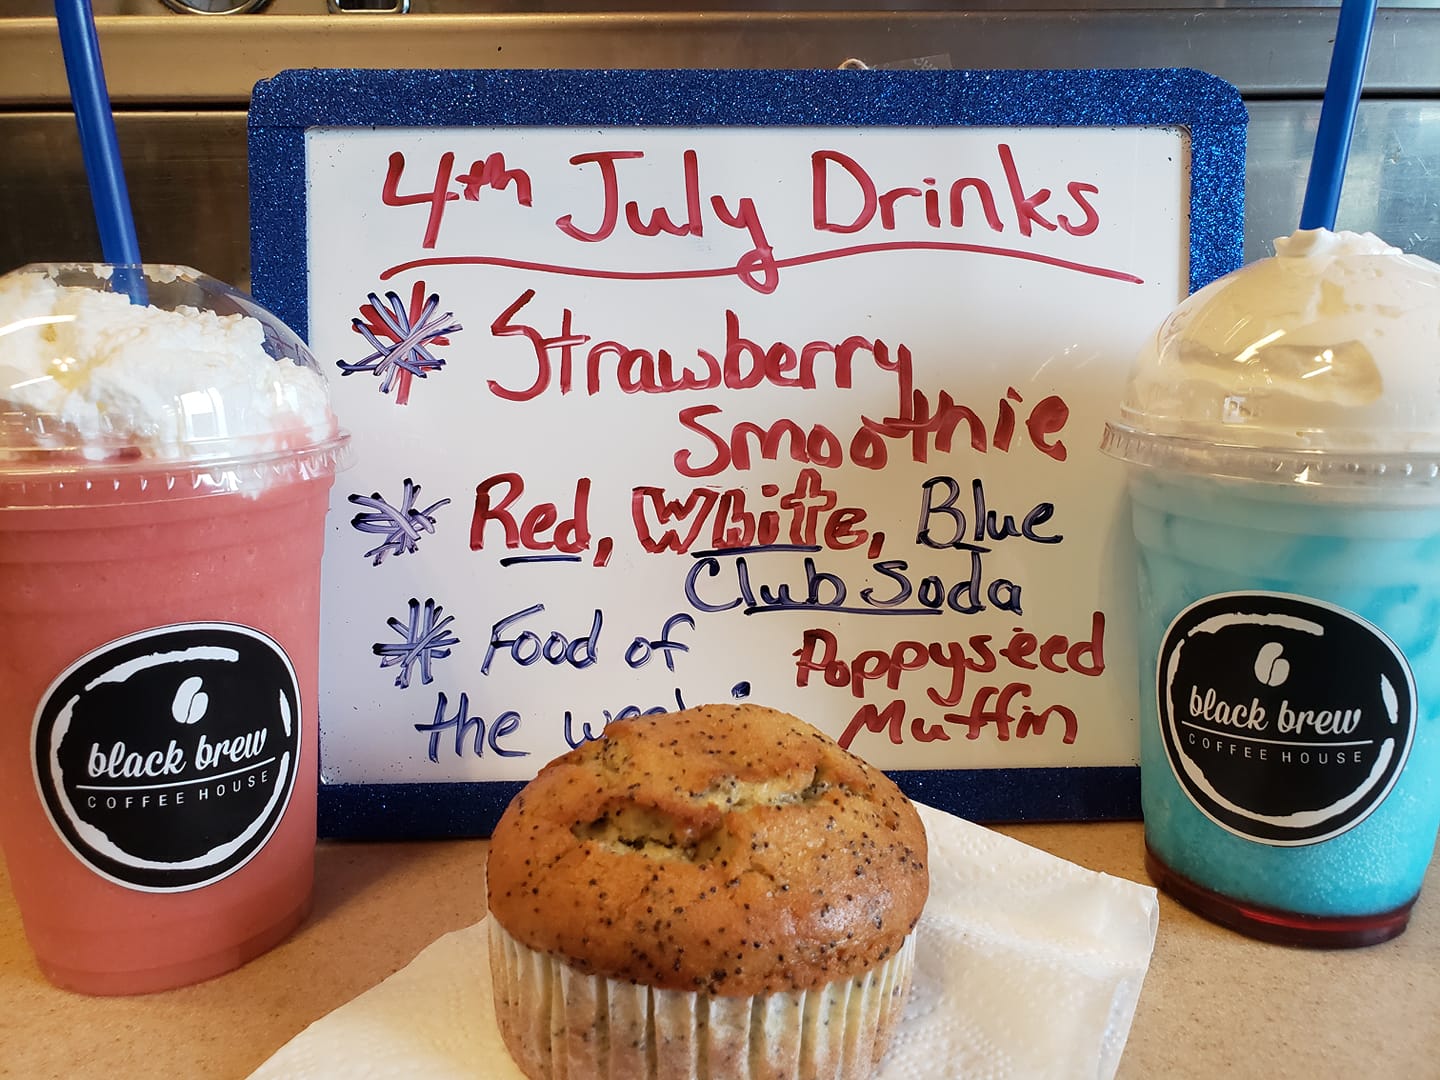 4th July Drinks
Strawberry
Smoothie
Red, White, Blue
Club Soda
Food of
the
Poppyseed
Muffin
black brew
COFFEE HOUSE
black brew
COFFEE HOUSE